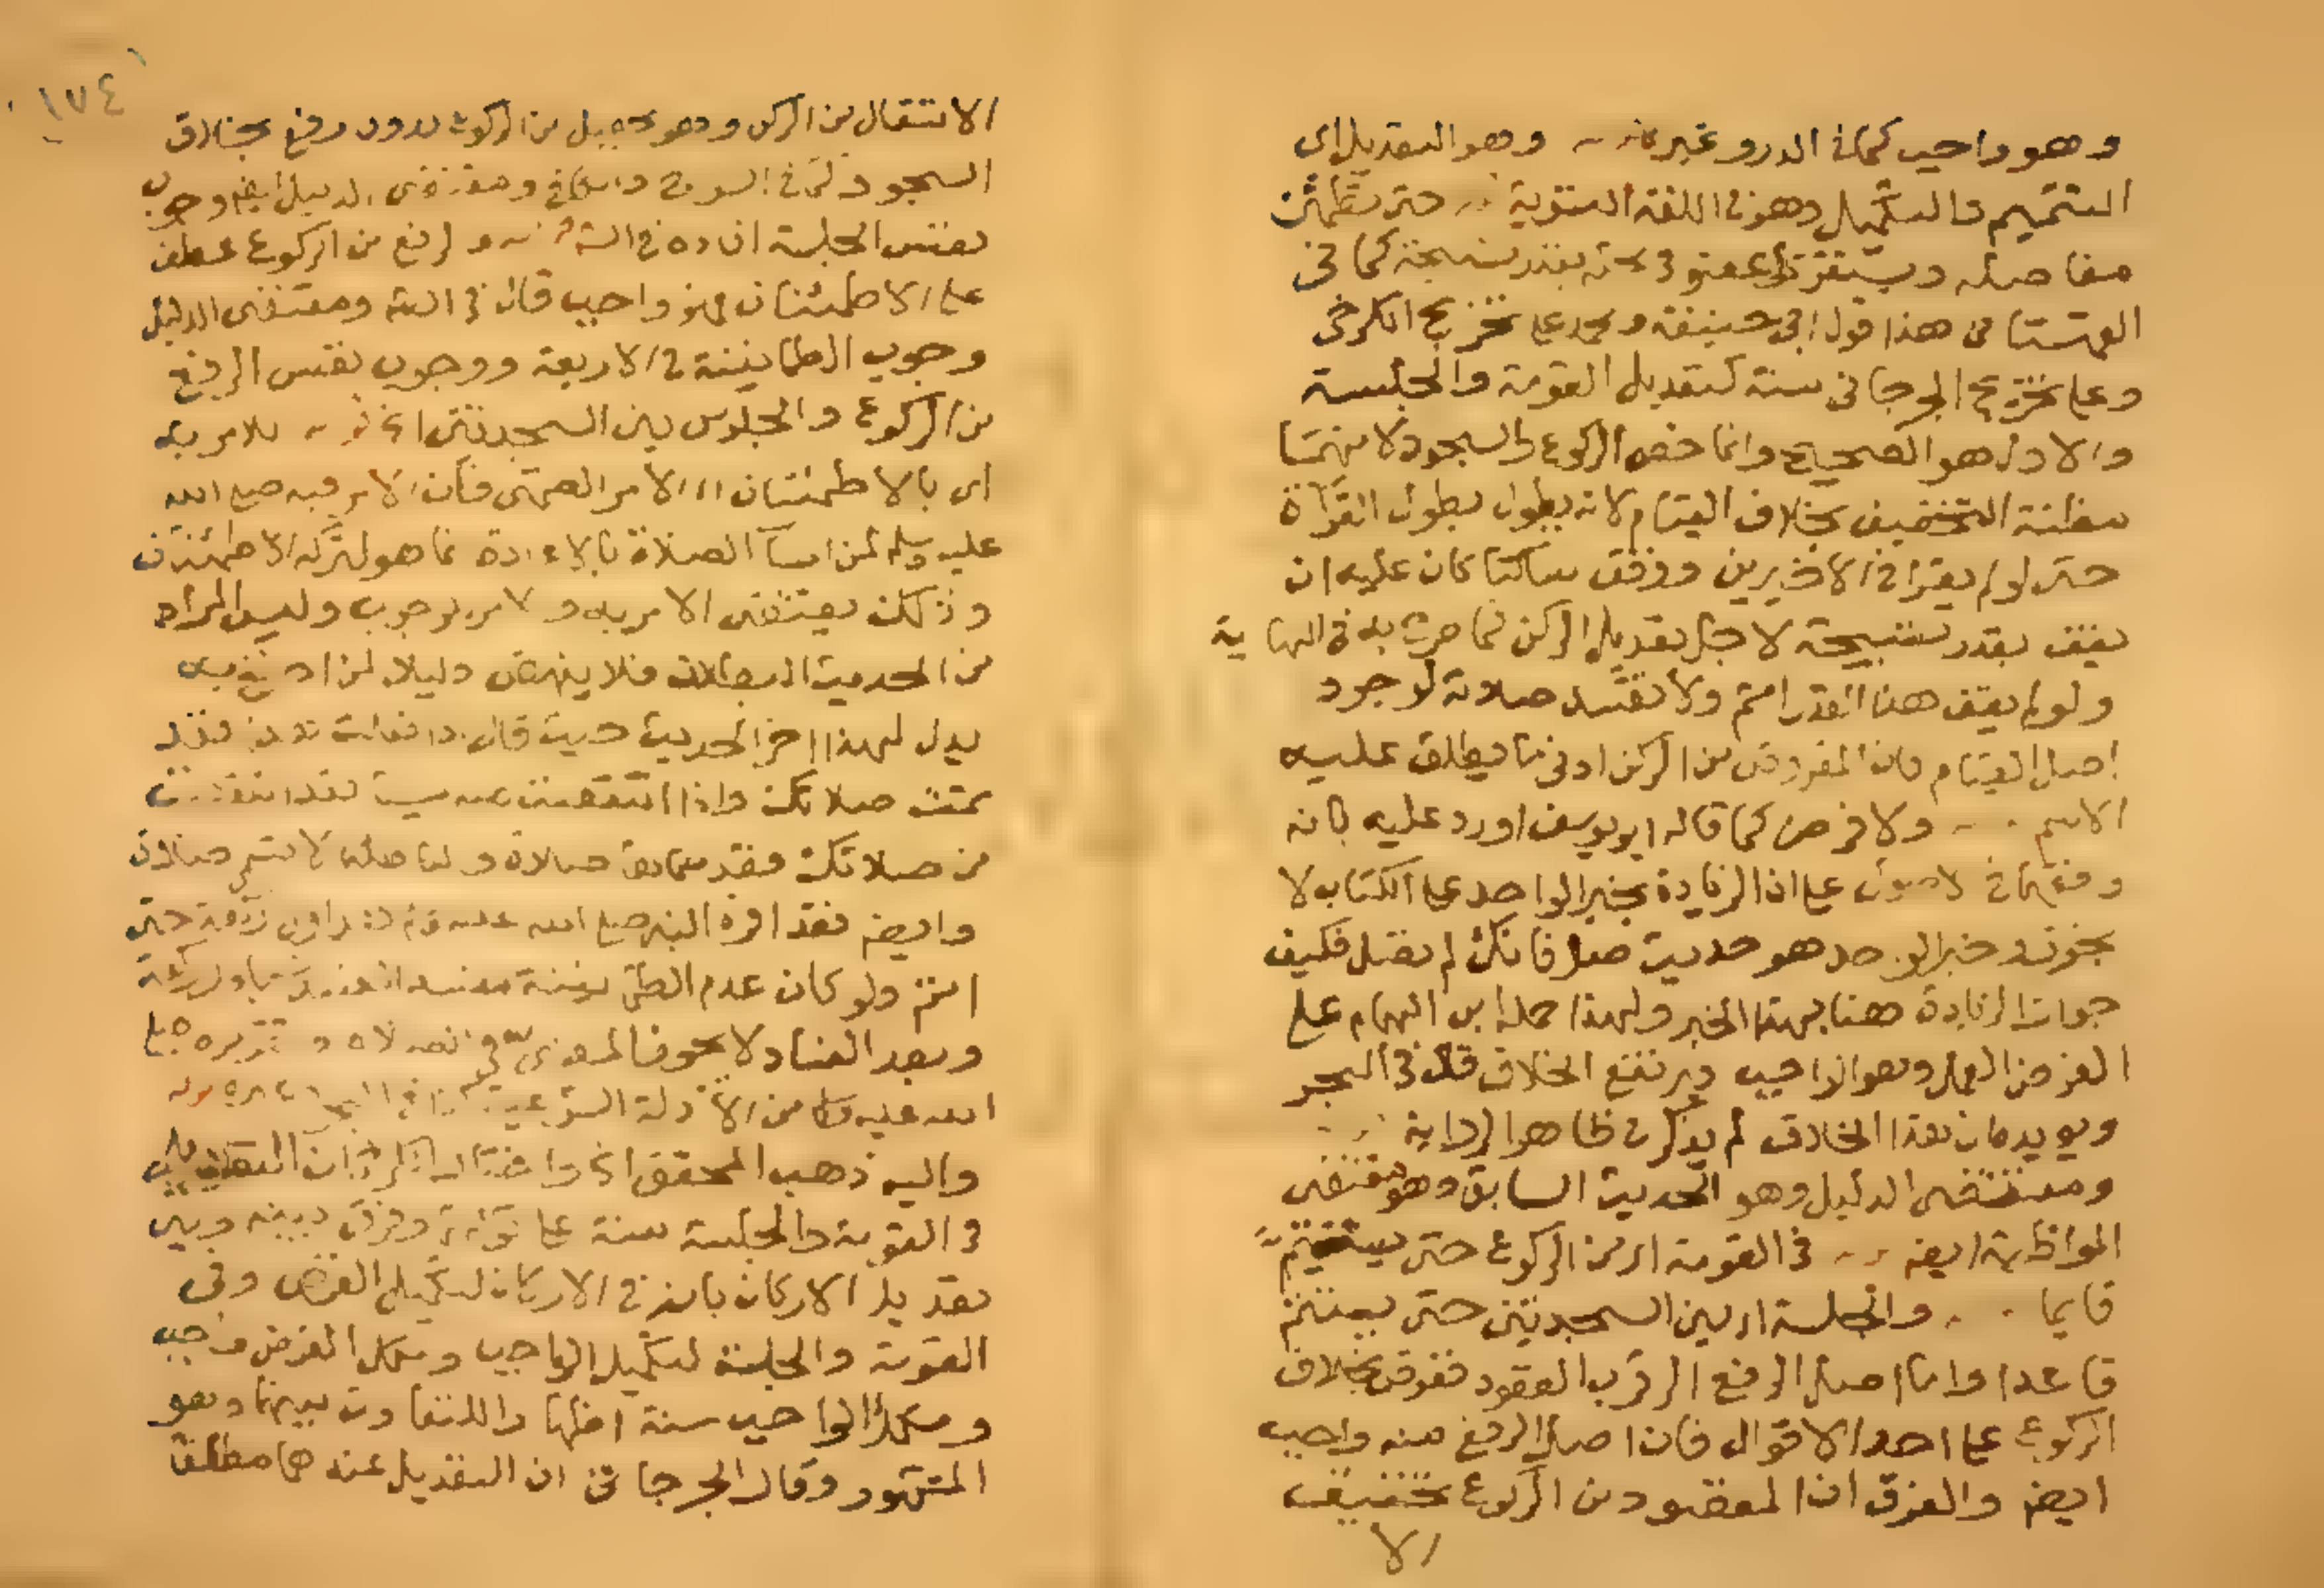 وهو واجب كما في الدرر وغيره وهو التعديل اي
التتميم والتكميل وهو في اللغة التسوية حتى تطمئن
مفاصله ويستقر كل عضو في محله بقدر تسبيحة كما في
القهستاني هذا قول ابي حنيفة ومحمد على تخريج الكرخي
وعلى تخريج الجرجاني سنة كتعديل القومة والجلسة
والاول هو الصحيح وانما خص الركوع والسجود لانهما
مظنة التخفيف بخلاف القيام لانه يطول بطول القرآة
حتى لو لم يقرا في الاخيرين ووقف ساكتا كان عليه ان
يقف بقدر تسبيحة لاجل تعديل الركن كما صرح به في النهاية
ولو لم يقف هذا القدر اثم ولا تفسد صلاته لوجود
اصل القيام فان المفروض من الركن ادنى ما يطلق عليه
الاسم ولا فرض كما قاله ابو يوسف اورد عليه بانه
وفقهما في الاصول على ان الزيادة بخبر الواحد على الكتاب لا
يجوز وخبر الواحد هو حديث صل فانك لم تصل فكيف
جوزا الزيادة هنا بهذا الخبر ولهذا حمله ابن الهمام على
الفرض العملي وهو الواجب ويرتفع الخلاف قال في البحر
ويويده ان هذا الخلاف لم يذكر في ظاهر الرواية
ومقتضى الدليل وهو الحديث السابق وهو يقتضى
المواظبة ايضا في القومة اي من الركوع حتى يستتم
قايما والجلسة اي بين السجدتين حتى يستتم
قاعدا واما اصل الرفع الى قرب القعود ففرض بخلاف
الركوع على احد الاقوال فان اصل الرفع منه واجب
ايضا والفرق ان المقصود من الركوع تخفيف
الا
١٧٤
الانتقال من الركن وهو يحصل من الركوع بدون رفع بخلاف
السجود ذكره في السراج ومقتضى الدليل ايضا وجوب
نفس الجلسة افاده في الرفع من الركوع عطف
على الاطمئنان فهو واجب قال في ومقتضى الدليل
وجوب الطمانينة في الاربعة ووجوب نفس الرفع
من الركوع والجلوس بين السجدتين للامر به
اي بالاطمئنان الامر الضمني فان الامر فيه صلى الله
عليه وسلم لمن اسآ الصلاة بالاعادة انما هو لتركه الاطمئنان
وذلك يقتضى الامر به والامر للوجوب وليس المراد
من الحديث البطلان فلا ينهض دليلا لمن ادعى فرضيته
يدل لهذا اخر الحديث حيث قال واذا فعلت ذلك فقد
تمت صلاتك واذا انتقصت منه شيئا فقد انتقصت
من صلاتك فقد سماها صلاة والباطلة لا تسمى صلاة
وايضا فقد اقره النبي صلى الله عليه وسلم بعد اول ركعة حتى
اتم ولو كان عدم الطمانينة مفسدا لفسدت باول ركعة
وبعد الفساد لا يحل المضي في الصلاة وتقريره صلى
الله عليه وسلم من الادلة الشرعية
واليه ذهب المحقق واختار الكرخي ان التعديل
في القومة والجلسة سنة على وفرق بينه وبين
تعديل الاركان بانه في الاركان لتكميل الفرض وفي
القومة والجلسة لتكميل الواجب ومكمل الفرض واجب
ومكمل الواجب سنة اظهارا للتفاوت بينهما وهو
المشهور وقال الجرجاني ان التعديل عندهما مطلقا